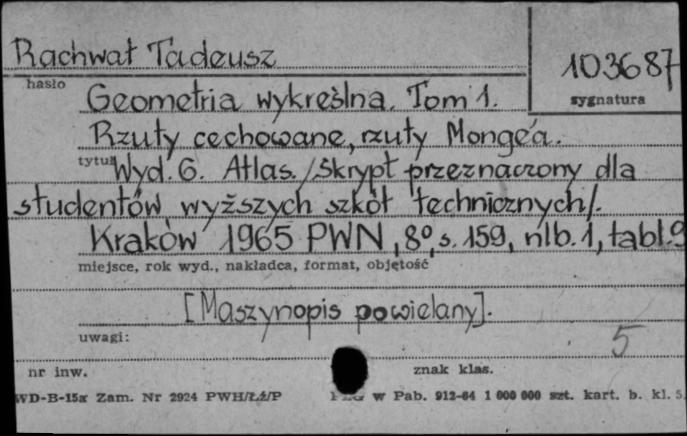 Rachwał Tadeusz
103687
hasło
sygnatura
Geometria wykreślna. Tom 1.
Rzuty cechowane, rzuty Monge'a.
tytuł
Wyd. 6. Atlas. /Skrypt przeznaczony dla
studentów wyższych szkół technicznych/.
Kraków 1965 PWN, 8°, s. 159, nlb. 1, tabl. 9
miejsce, rok wyd., nakładca, format, objętość
[Maszynopis powielany].
uwagi:
5
nr inw.
znak klas.
WD-B-15a Zam. Nr 2924 PWH/Łż/P w Pab. 912-64 1 000 000 szt. kart. b. kl. 5